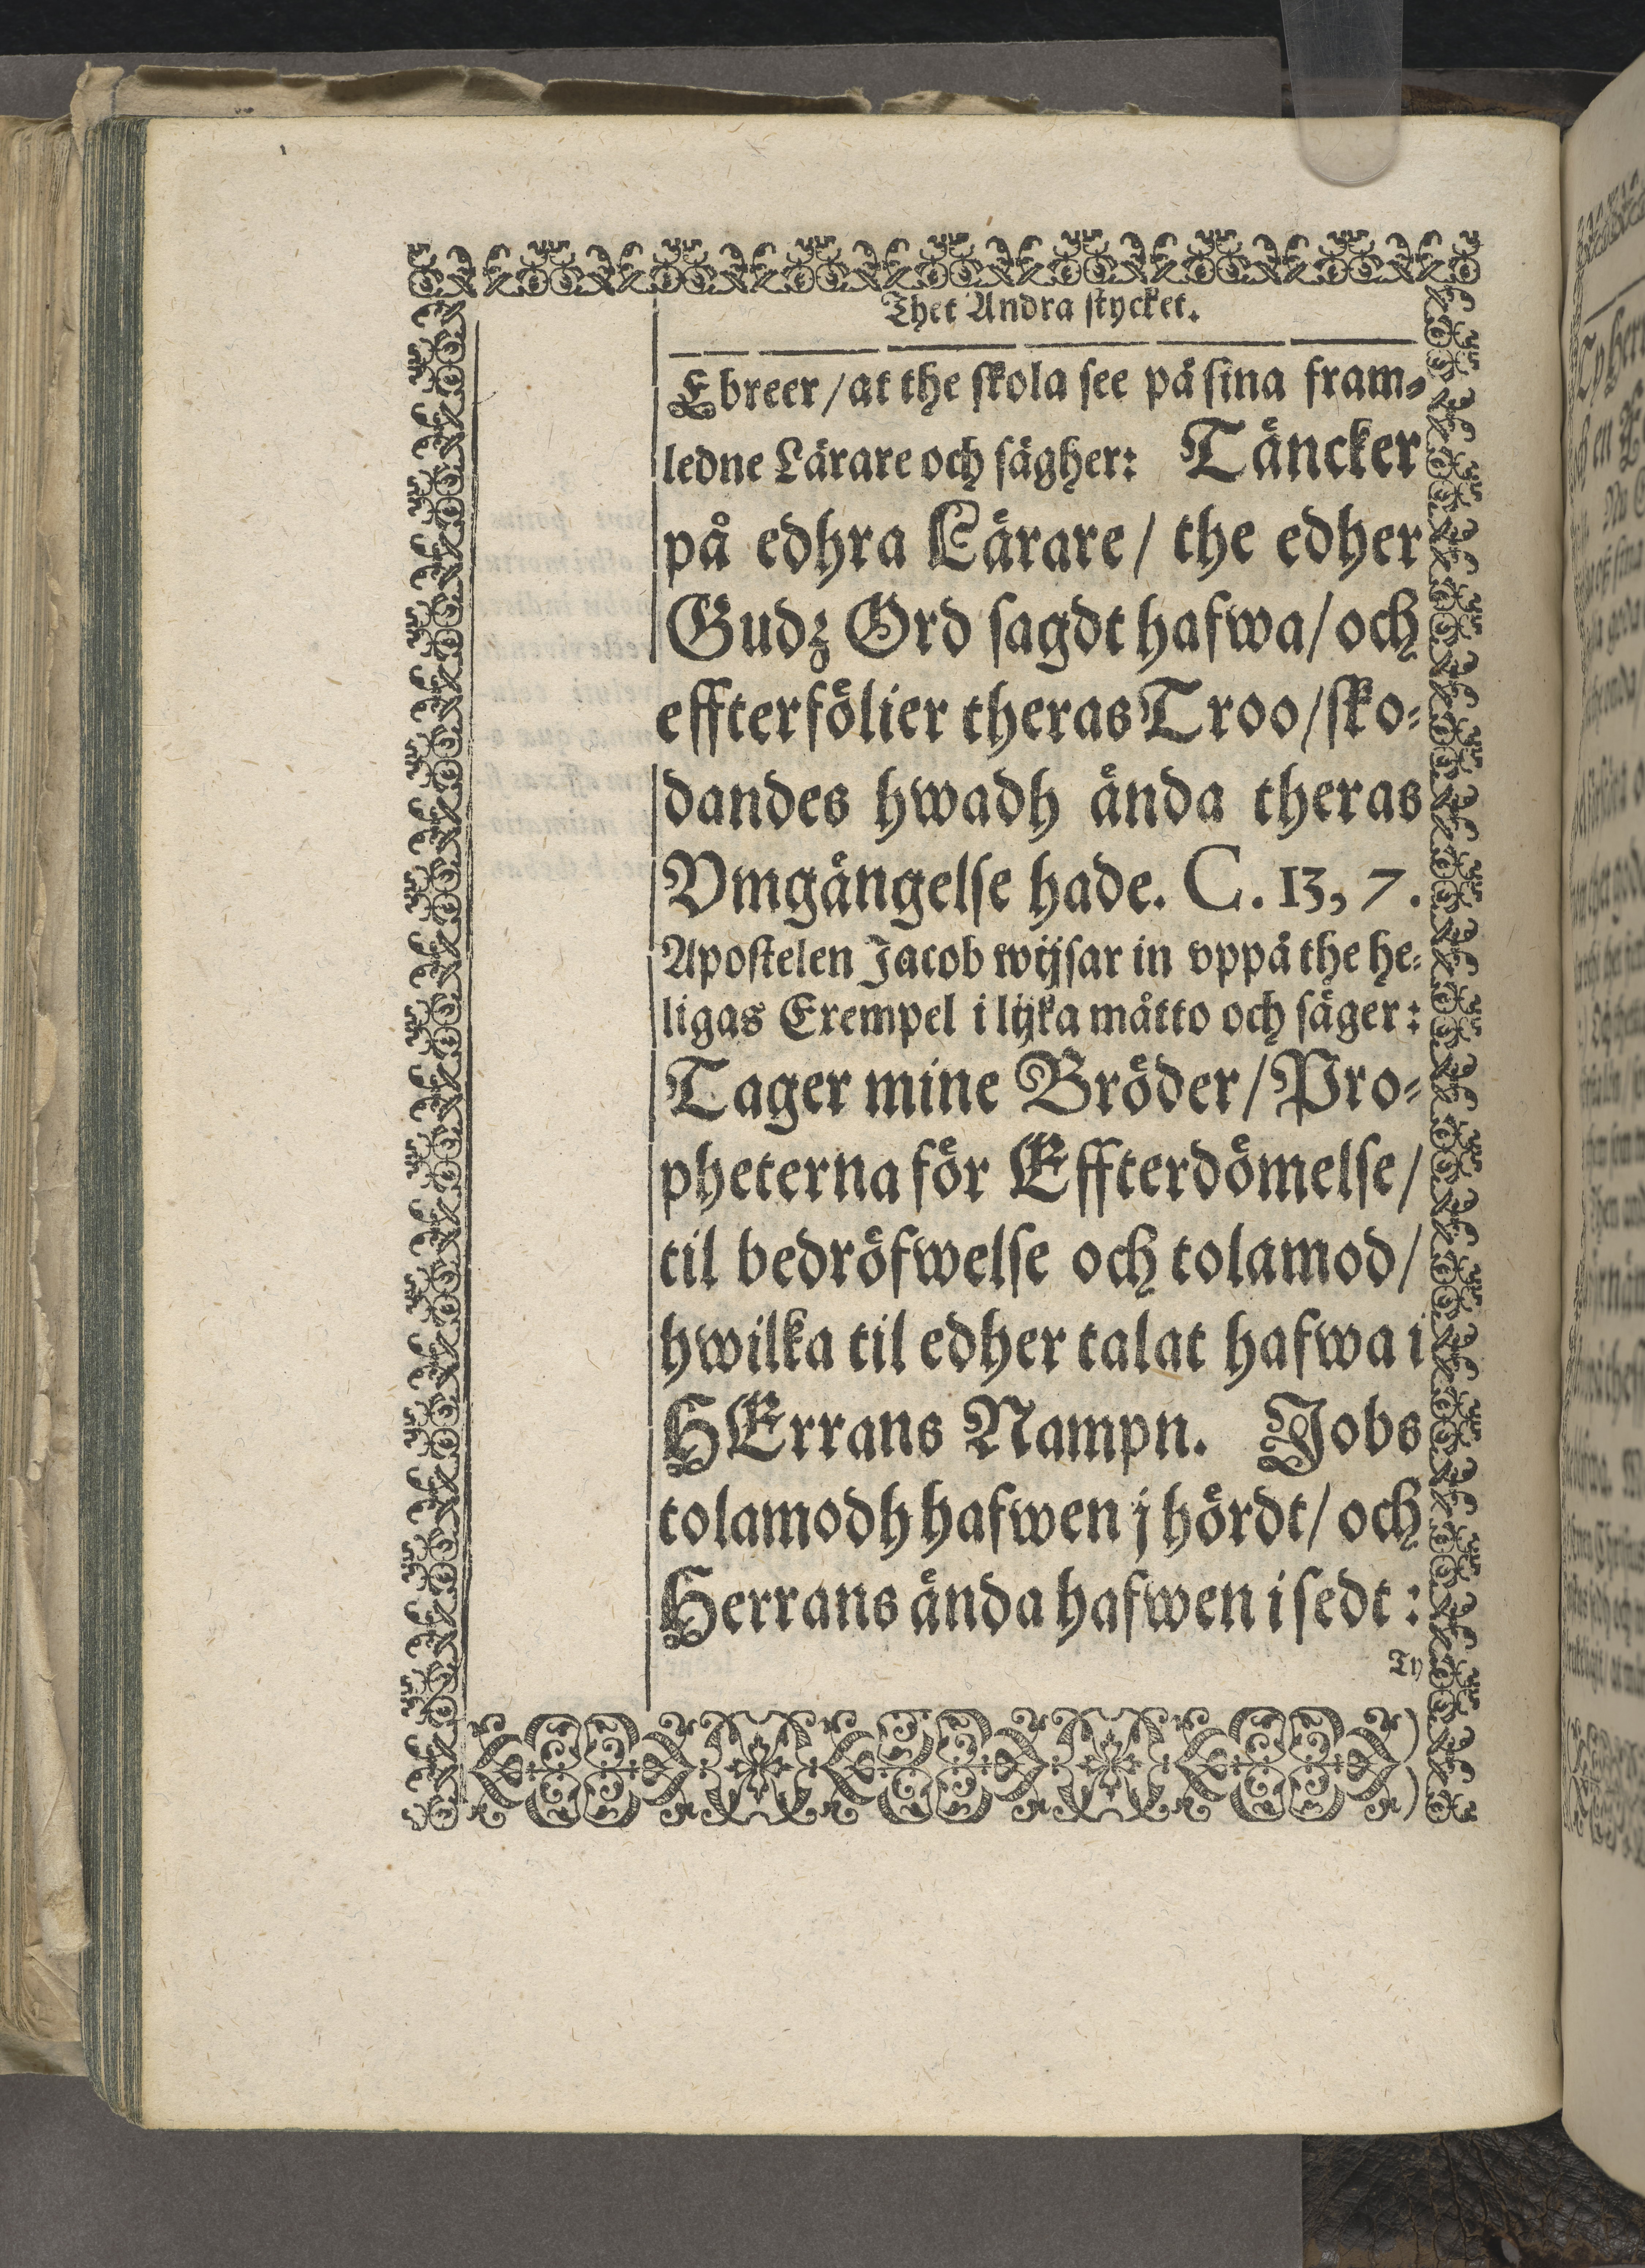 Thet Andra stycket.
Ebreer/at the skola see på sina fram-
ledne Lärare och sägher: Täncker
på edhra Lärare/ the edher
Gudz Ord sagdt hafwa/och
effterfölier theras Troo/sko-
dandes hwadh ända theras
Vmgängelse hade. C. 13, 7.
Apostelen Jacob wijsar in vppå the he-
ligas Exempel i lijka måtto och säger:
Tager mine Bröder/Pro-
pheterna för Effterdömelse/
til bedröfwelse och tolamod/
hwilka til edher talat hafwa i
HErrans Nampn. Jobs
tolamodh hafwen j hördt/ och
Herrans ända hafwen i sedt:
Ty